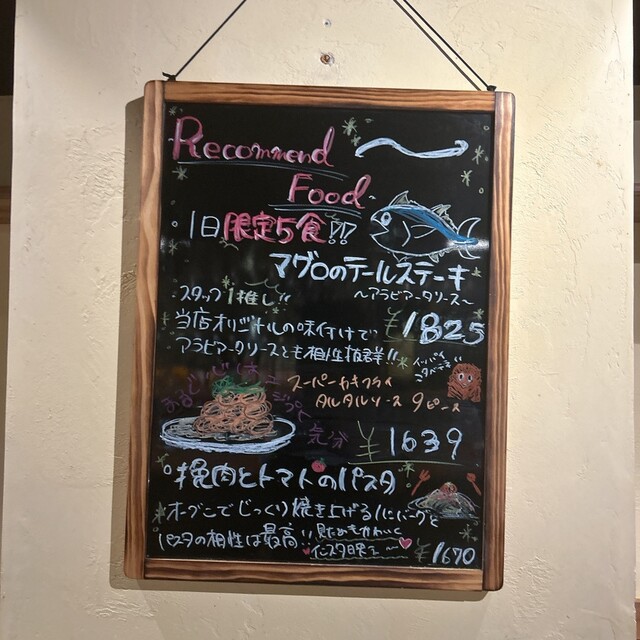 Recommend
Food
1日限定5食!!
マグロのテールステーキ
～アラビアータソース～
スタッフ1推し!!
当店オリジナルの味付けで
¥1825
アラビアータソースとも相性抜群!!
スーパーカキフライ
タルタルソース 9ピース
気分
¥1639
挽肉とトマトのパスタ
オーブンでじっくり焼き上げるハンバーグと
パスタの相性は最高!! 見ためもかわいく
¥1670